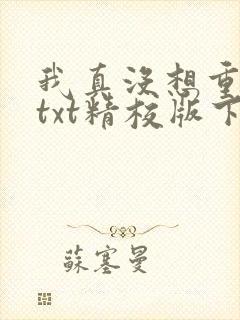 我真没想重
txt精校版下
蘇塞曼